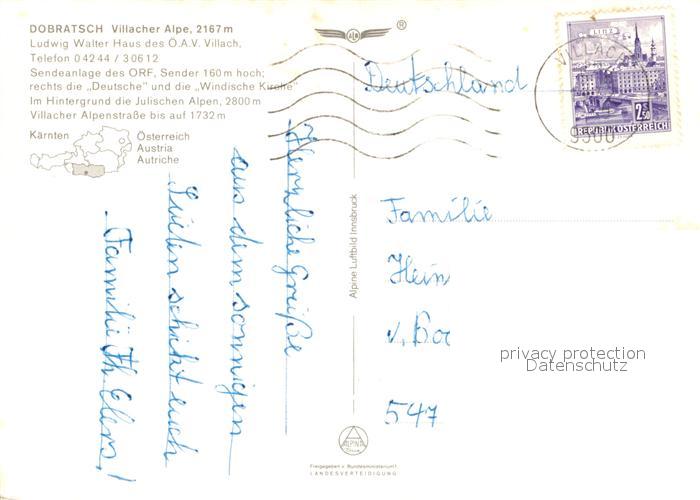 DOBRATSCH Villacher Alpe, 2167 m
Ludwig Walter Haus des Ö.A.V. Villach,
Telefon 0 42 44 / 3 06 12
Sendeanlage des ORF, Sender 160 m hoch;
rechts die „Deutsche" und die „Windische Kirche"
Im Hintergrund die Julischen Alpen, 2800 m
Villacher Alpenstraße bis auf 1732 m
Kärnten
Österreich
Austria
Autriche
®
LINZ
2.50
REPUBLIK ÖSTERREICH
VILLACH
9500
Deutschland
Herzliche Grüße
aus dem sonnigen
Süden schickt euch
Familie Th.
Alpine Luftbild Innsbruck
Familie
Hein
v.
547
privacy protection
Datenschutz
ALPINE
Freigegeben v. Bundesministerium f.
LANDESVERTEIDIGUNG